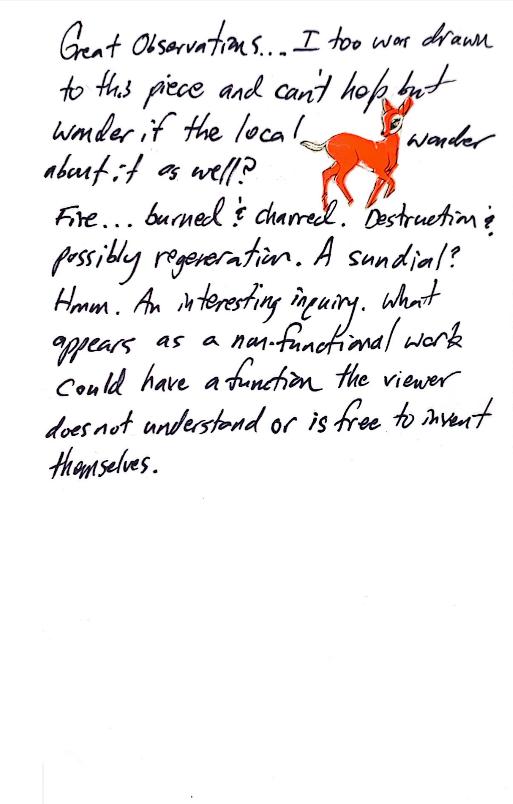 Great Observations... I too was drawn
to this piece and can't help but
wonder if the local wonder
about it as well?
Fire... burned & charred. Destruction &
possibly regeneration. A sundial?
Hmm. An interesting inquiry. What
appears as a non-functional work
could have a function the viewer
does not understand or is free to invent
themselves.